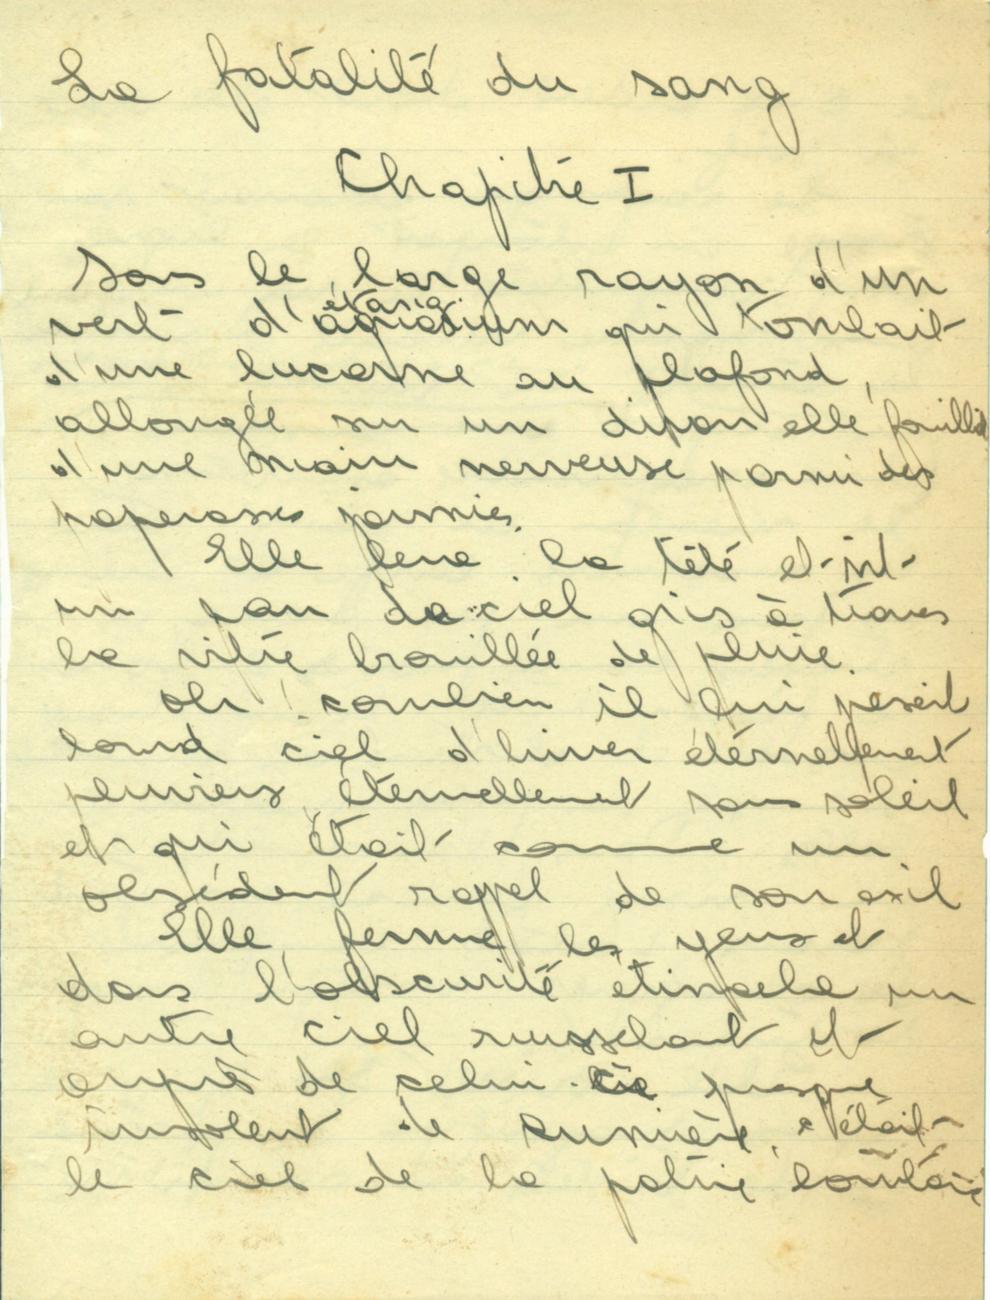 La fatalité du sang
Chapitre I
Sous le large rayon d'un
vert d'étang qui tombait
d'une lucarne au plafond,
allongée sur un divan elle fouillait
d'une main nerveuse parmi des
paperasses jaunies.
Elle leva la tête et vit
un pan de ciel gris à travers
la vitre brouillée de pluie.
Oh ! combien il lui pesait
lourd ciel d'hiver éternellement
pluvieux, éternellement sans soleil
et qui était comme un
obsédant rappel de son exil
Elle ferma les yeux et
dans l'obscurité étincela un
autre ciel ruisselant et
auprès de celui-ci presque
insolent de lumière, c'était
le ciel de la patrie lointaine